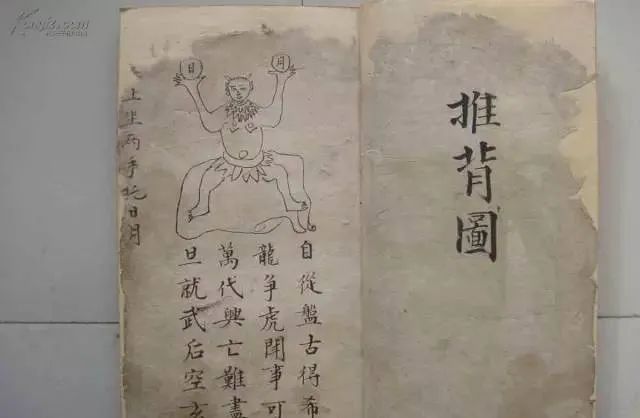 推背圖
月
日
自從盤古得希
龍争虎閗事可
萬代興亡難盡
旦就武后空
上坐兩手托日月